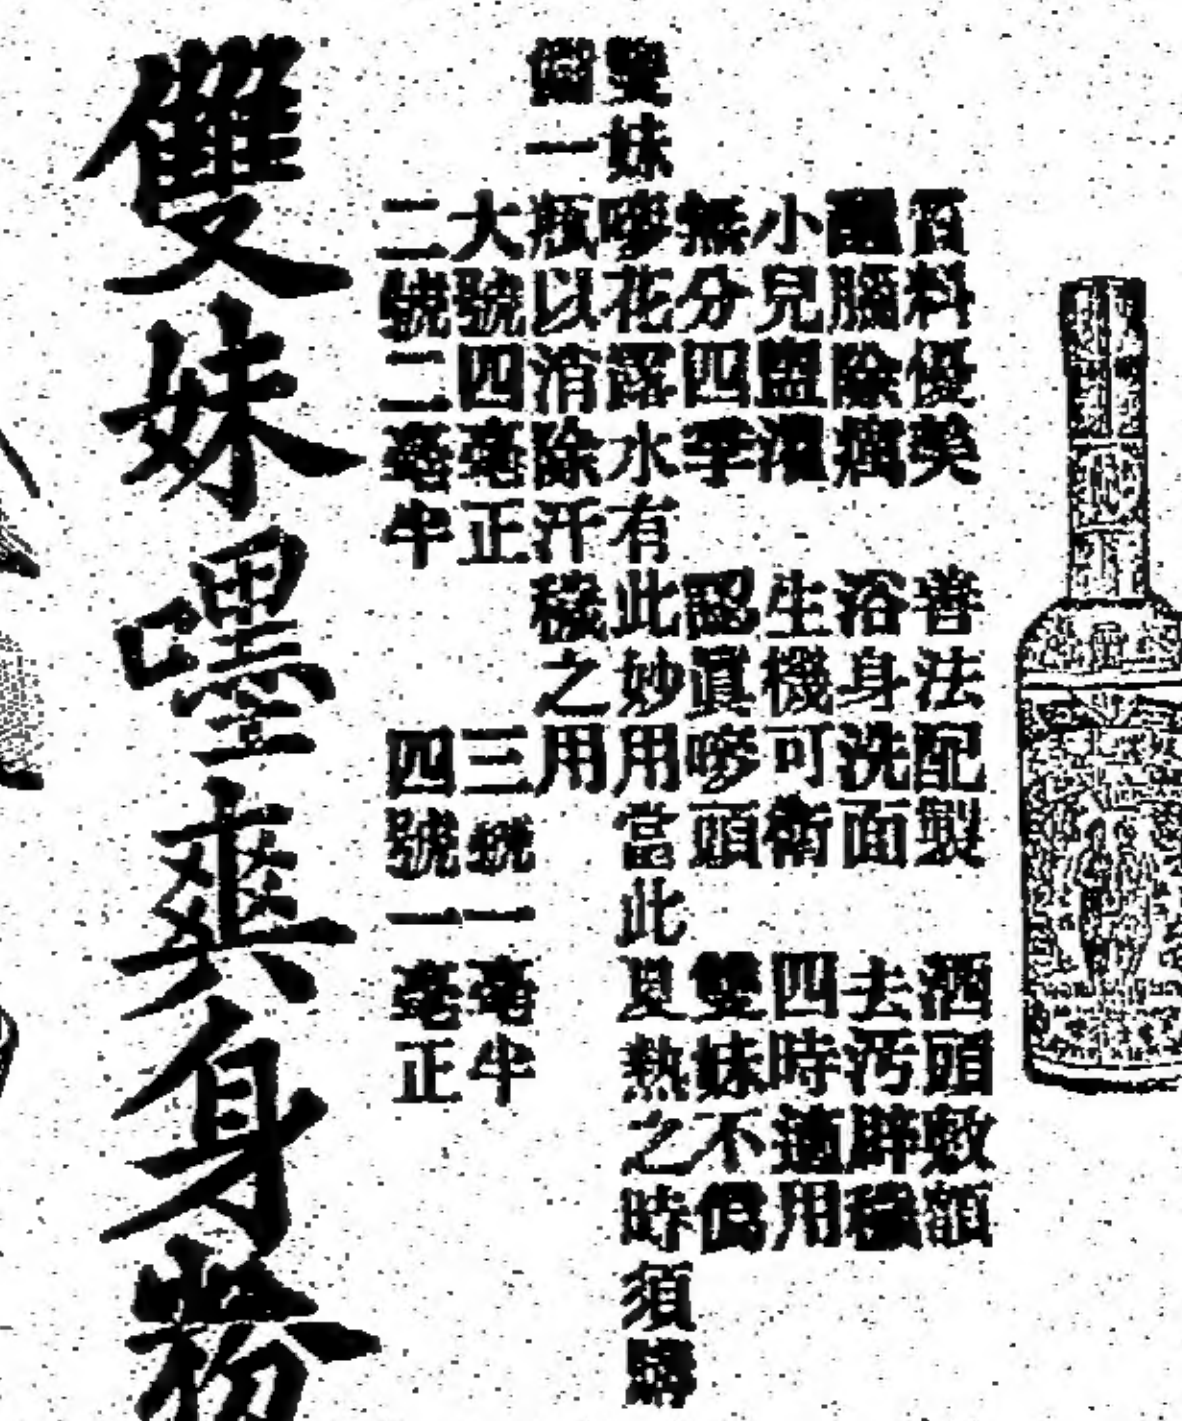 質料優美 善法配製 酒頭敷額
醒腦除煩 浴身洗面 去污辟穢
小兒盥濯 生機可衛 四時適用
無分四季 認真嘜頭 雙妹不偽
雙妹嘜花露水有此妙用當此夏熱之時須購
備一瓶以消除汗穢之用
大號四毫正 三號一毫半
二號二毫半 四號一毫正
雙妹嘜爽身粉